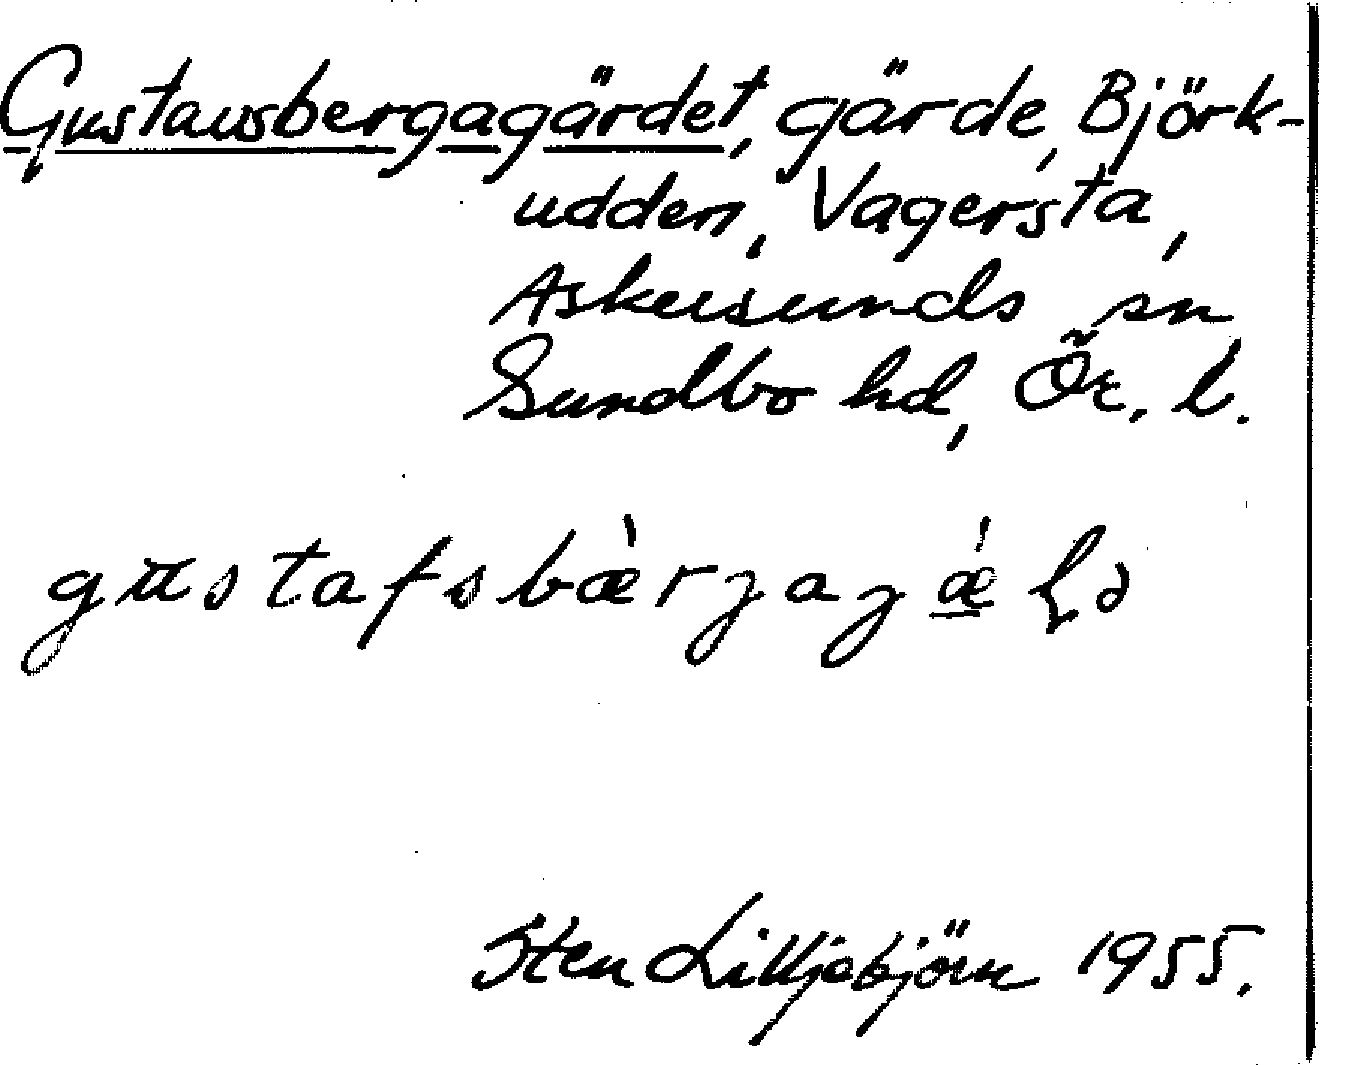 Gustavsbergagärdet, gärde, Björk-
udden, Vagersta,
Askersunds sn
Sundbo hd, Ör. l.
gustafsbæ̀rjajǽ
Sten Lilljebjörn 1955.